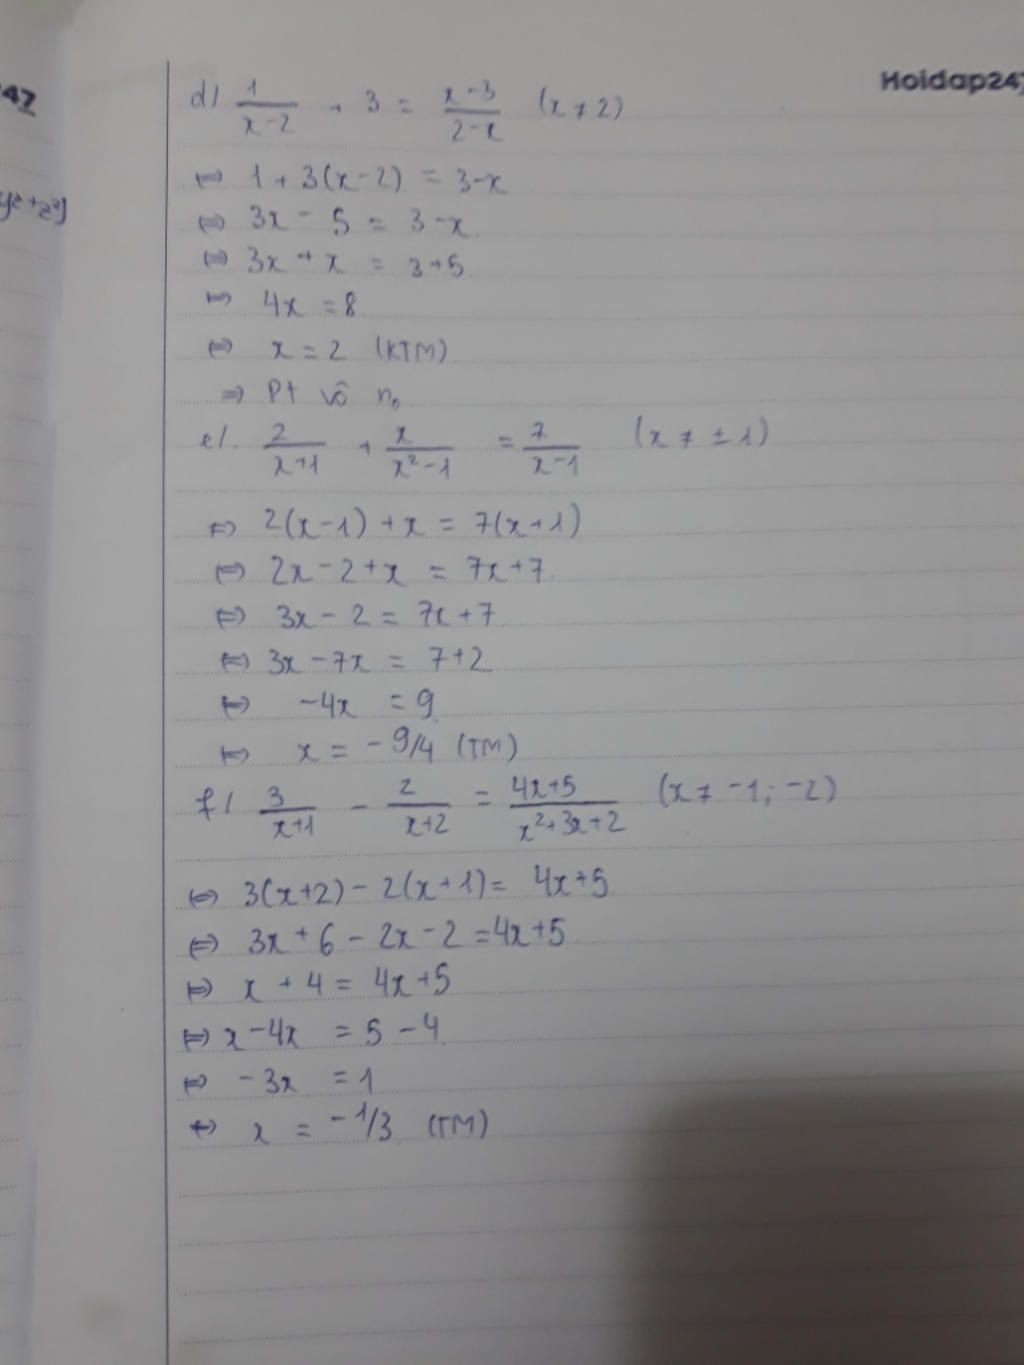 47
Hoidap247
y²+z²)
d) 1/(x-2) + 3 = (x-3)/(2-x) (x ≠ 2)
⇔ 1 + 3(x-2) = 3-x
⇔ 3x - 5 = 3-x
⇔ 3x + x = 3+5
⇔ 4x = 8
⇔ x = 2 (KTM)
⇒ Pt vô n₀
e). 2/(x+1) + x/(x²-1) = 7/(x-1) (x ≠ ±1)
⇔ 2(x-1) + x = 7(x+1)
⇔ 2x - 2 + x = 7x+7
⇔ 3x - 2 = 7x + 7
⇔ 3x - 7x = 7+2
⇔ -4x = 9
⇔ x = -9/4 (TM)
f) 3/(x+1) - 2/(x+2) = (4x+5)/(x²+3x+2) (x ≠ -1; -2)
⇔ 3(x+2) - 2(x+1) = 4x+5
⇔ 3x + 6 - 2x - 2 = 4x+5
⇔ x + 4 = 4x+5
⇔ x - 4x = 5 - 4
⇔ -3x = 1
⇔ x = -1/3 (TM)